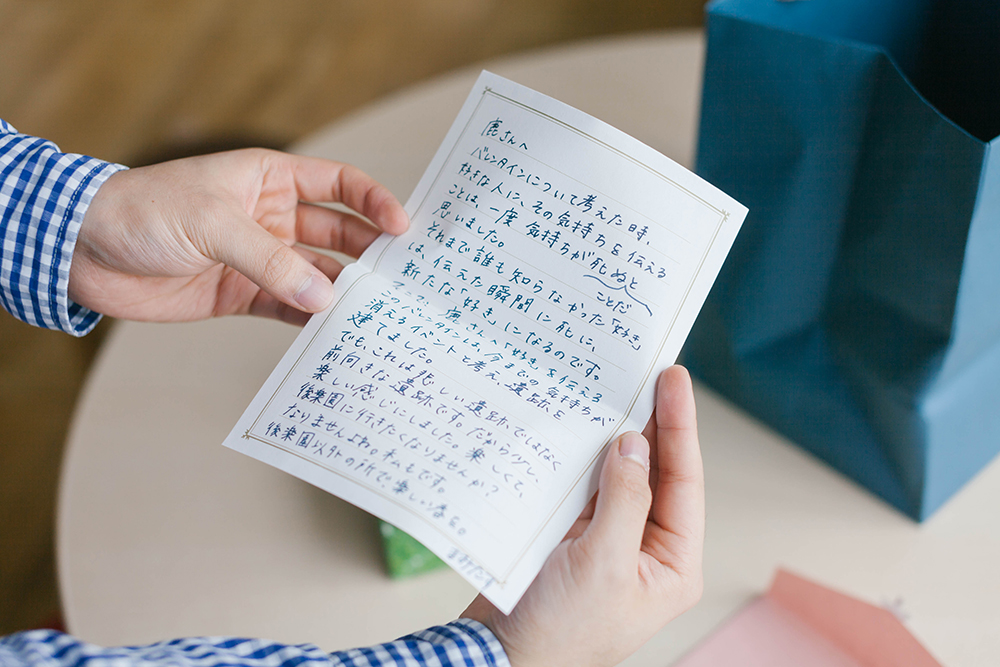 鹿さんへ
バレンタインについて考えた時、
好きな人に、その気持ちを伝える
ことは、一度気持ちが死ぬと
ことだ
思いました。
それまで誰も知らなかった「好き」
は、伝えた瞬間に死し、
新たな「好き」になるのです。
鹿さんへ「好き」を伝える
このバレンタインは、今までの気持ちが
消えるイベントと考え、遺跡を
建てました。
でも、これは悲しい遺跡ではなく
前向きな遺跡です。だから
楽しい感じにしました。楽しくて、
後楽園に行きたくなりませんか?
なりませんよね。私もです。
後楽園以外の所で、楽しい